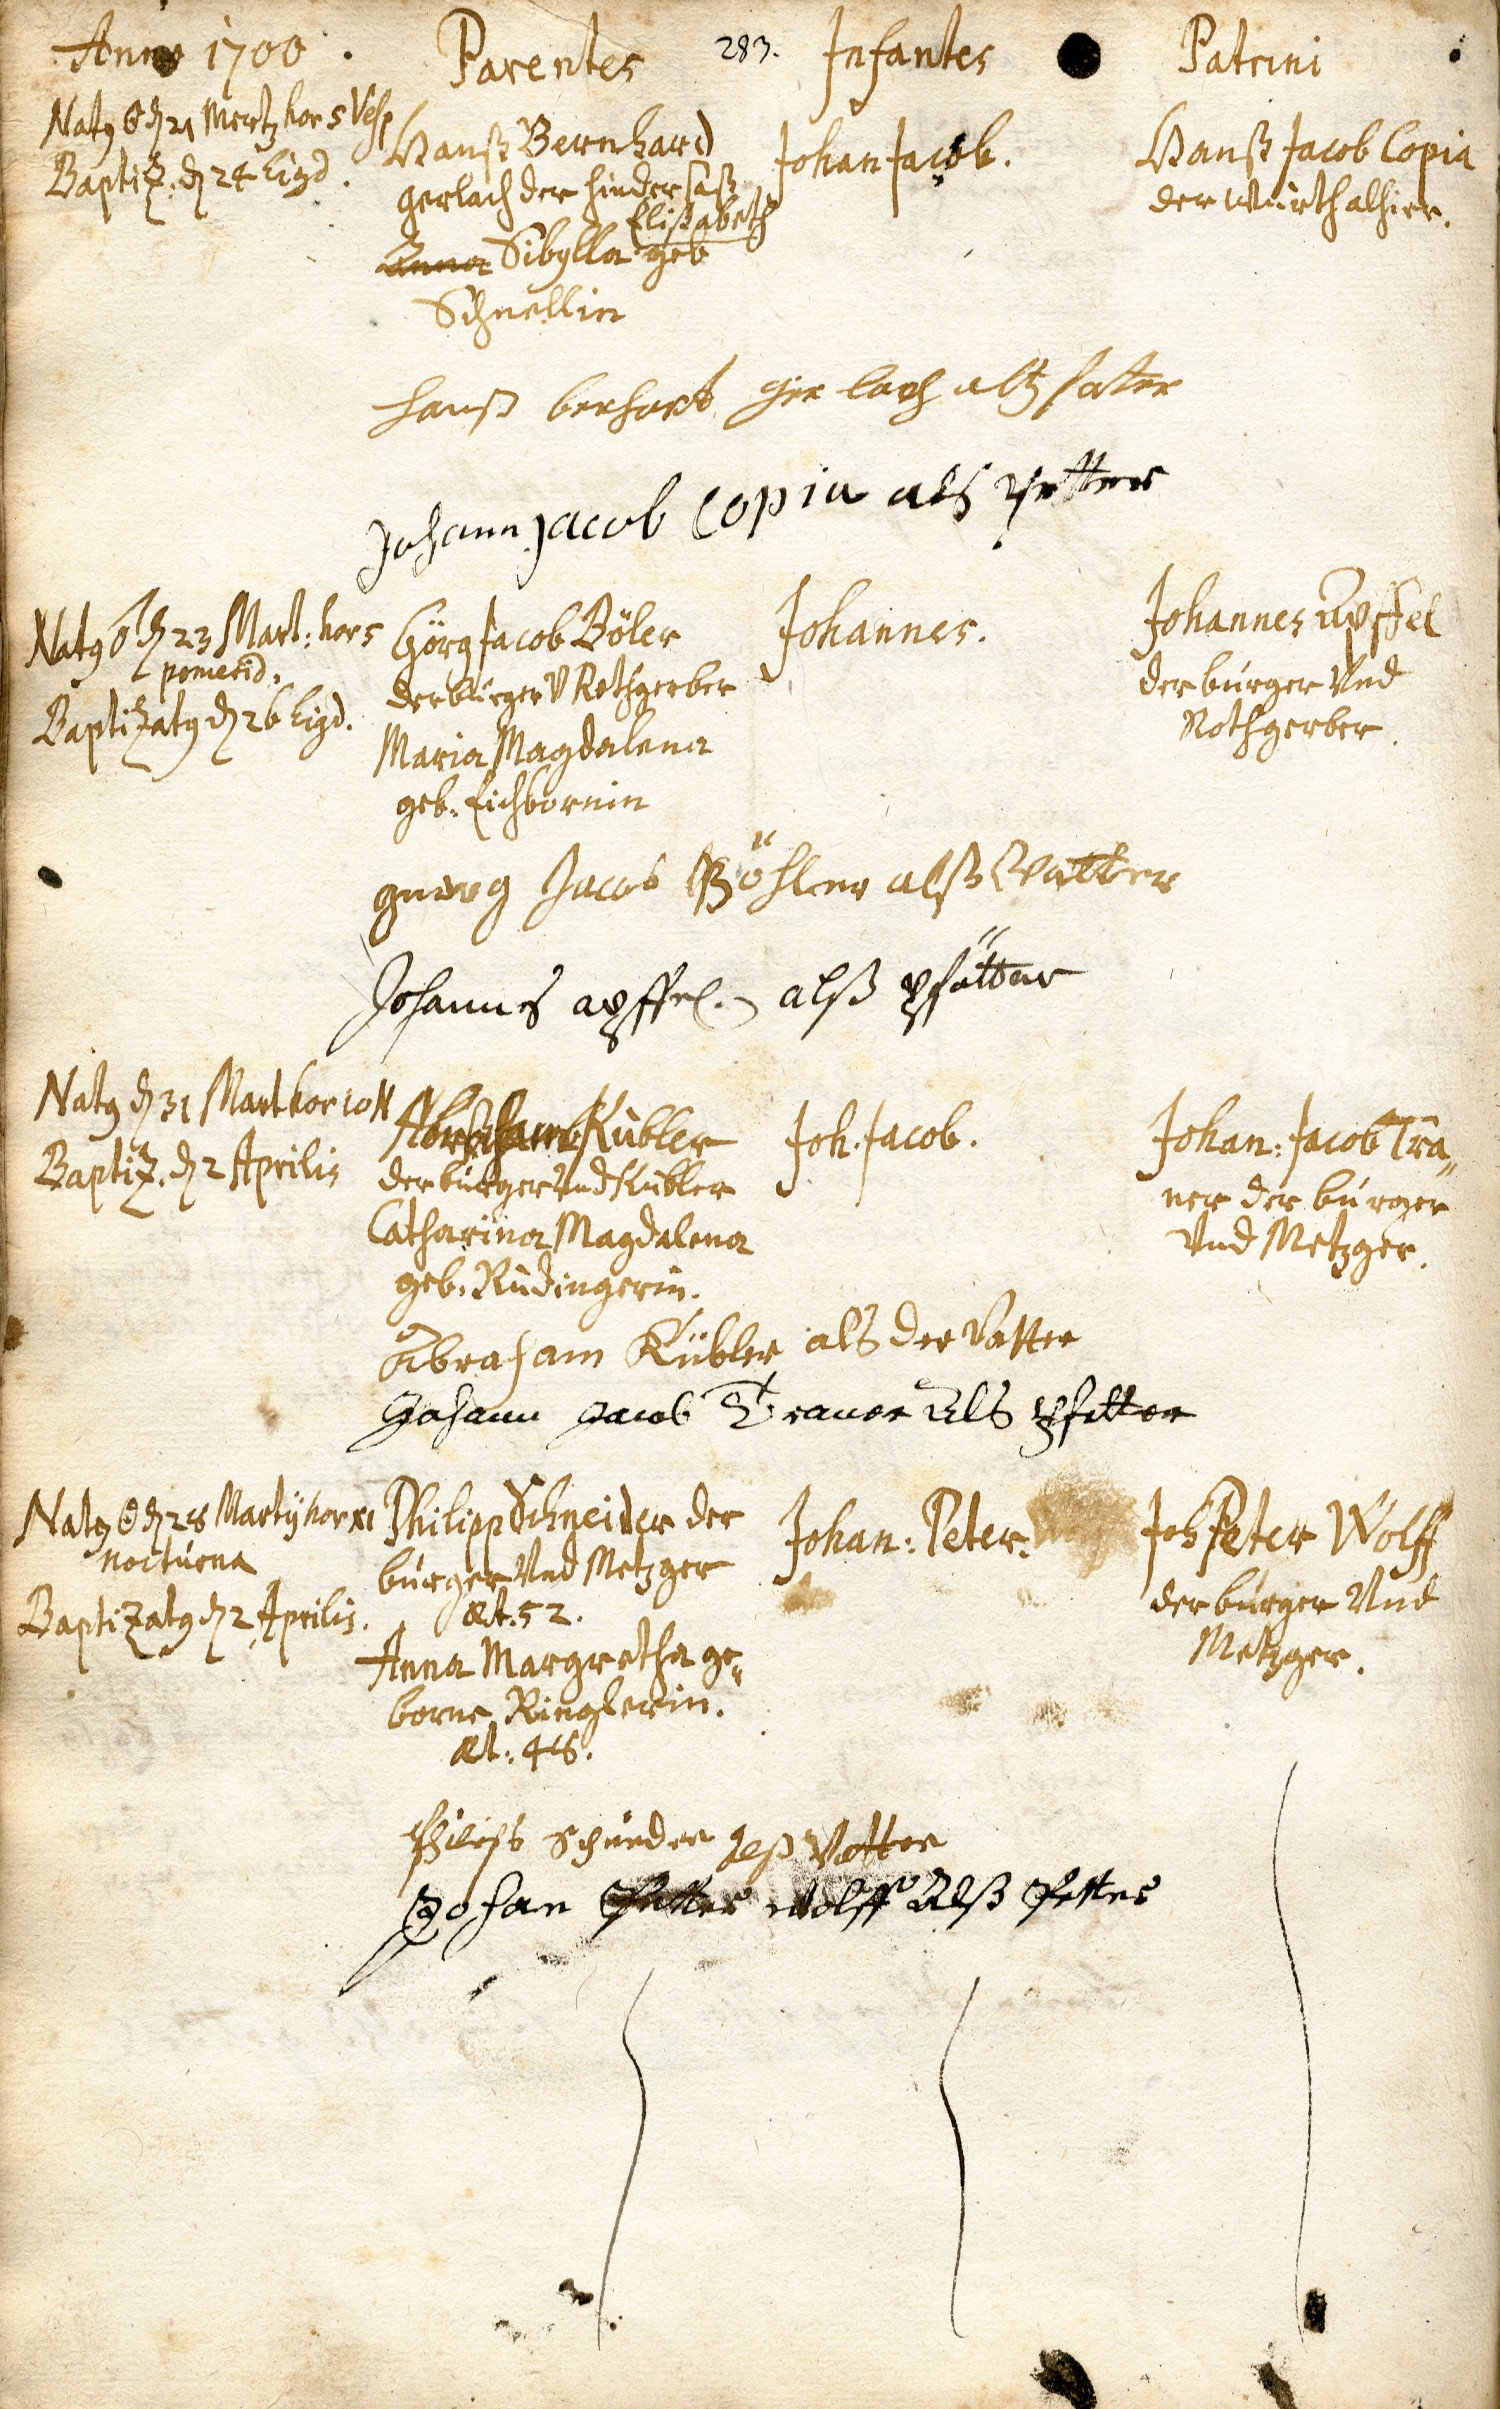 Anno 1700.
Parentes
283.
Infantes
Patrini
Natq d 21 Mertz hor 5 Vesp
Baptiz. d 24 Eigd.
Hanß Bernhard
gerlach der hindersaß
Elisabeth
Anna Sibylla geb
Schnellin
Johan Jacob.
Hanß Jacob Copia
der Würth alhier.
Hanß berhart gerlach alß fater
Johann Jacob Copia als Petter
Natq d 23 Mart: hor 5
pomerid.
Baptizatq d 26 Eigd.
Görg Jacob Böler
der bürger V Rothgerber
Maria Magdalena
geb. Eichbornin
Johannes.
Johannes Apffel
der bürger Vnd
Rothgerber.
Jacob Böhler alß Vatter
Johannes apffel alß Pfätter
Natq d 31 Mart hor 10
Baptiz. d 2 Aprilis
Abraham Kübler
der bürger Vnd Kübler
Catharina Magdalena
geb. Rüdingerin.
Joh. Jacob.
Johan: Jacob Tra„
ner der bürger
Vnd Metzger.
Abraham Kübler als der Vatter
Johann Jacob Traner Als Pfetter
Natq d 28 Martij hor XI
Nocturna
Baptizatq d 2 Aprilis.
Philipp Schneider der
bürger Vnd Metzger
æt. 52.
Anna Margretha ge„
borne Ringlerin.
æt: 48.
Johan: Peter.
Joh Peter Wolff
der bürger Vnd
Metzger.
Schneider Alß Vatter
Johan Petter Wolff Alß Petter